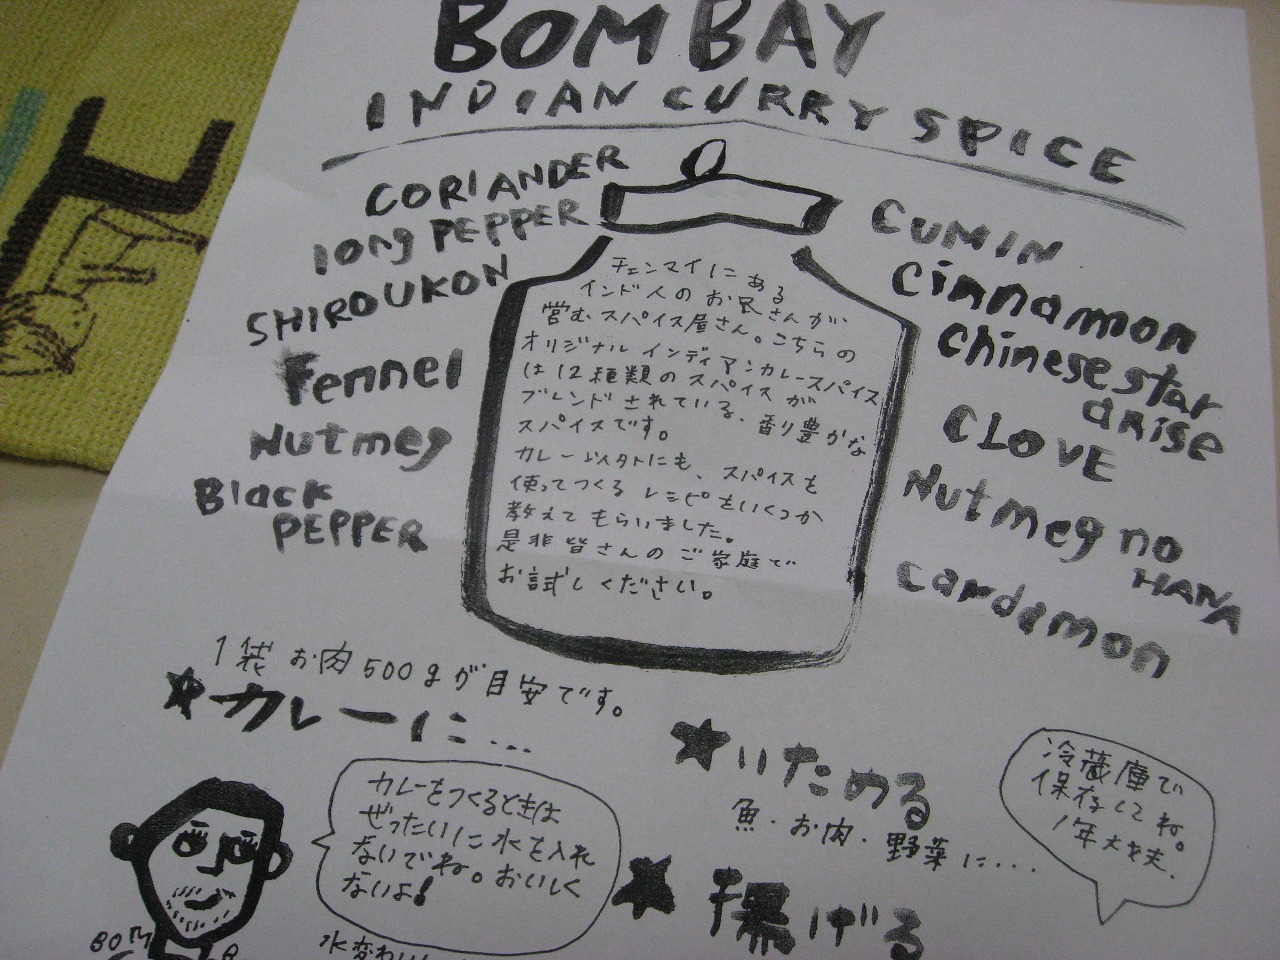 BOMBAY
INDIAN CURRY SPICE
CORIANDER
long PEPPER
SHIROUKON
Fennel
Nutmeg
Black
PEPPER
チェンマイにある
インド人のお兄さんが
営むスパイス屋さん。こちらの
オリジナルインディアンカレースパイス
は12種類のスパイスが
ブレンドされている、香り豊かな
スパイスです。
カレー以外にも、スパイスを
使ってつくるレシピをいくつか
教えてもらいました。
是非皆さんのご家庭で
お試しください。
CUMIN
Cinnamon
Chinese star
arise
CLOVE
Nutmeg no
HANA
cardamon
1袋 お肉500gが目安です。
★カレーに…
カレーをつくるときは
ぜったいに水を入れ
ないでね。おいしく
ないよ!
★いためる
魚・お肉・野菜に…
冷蔵庫で
保存してね。
1年大丈夫。
★揚げる
BOM